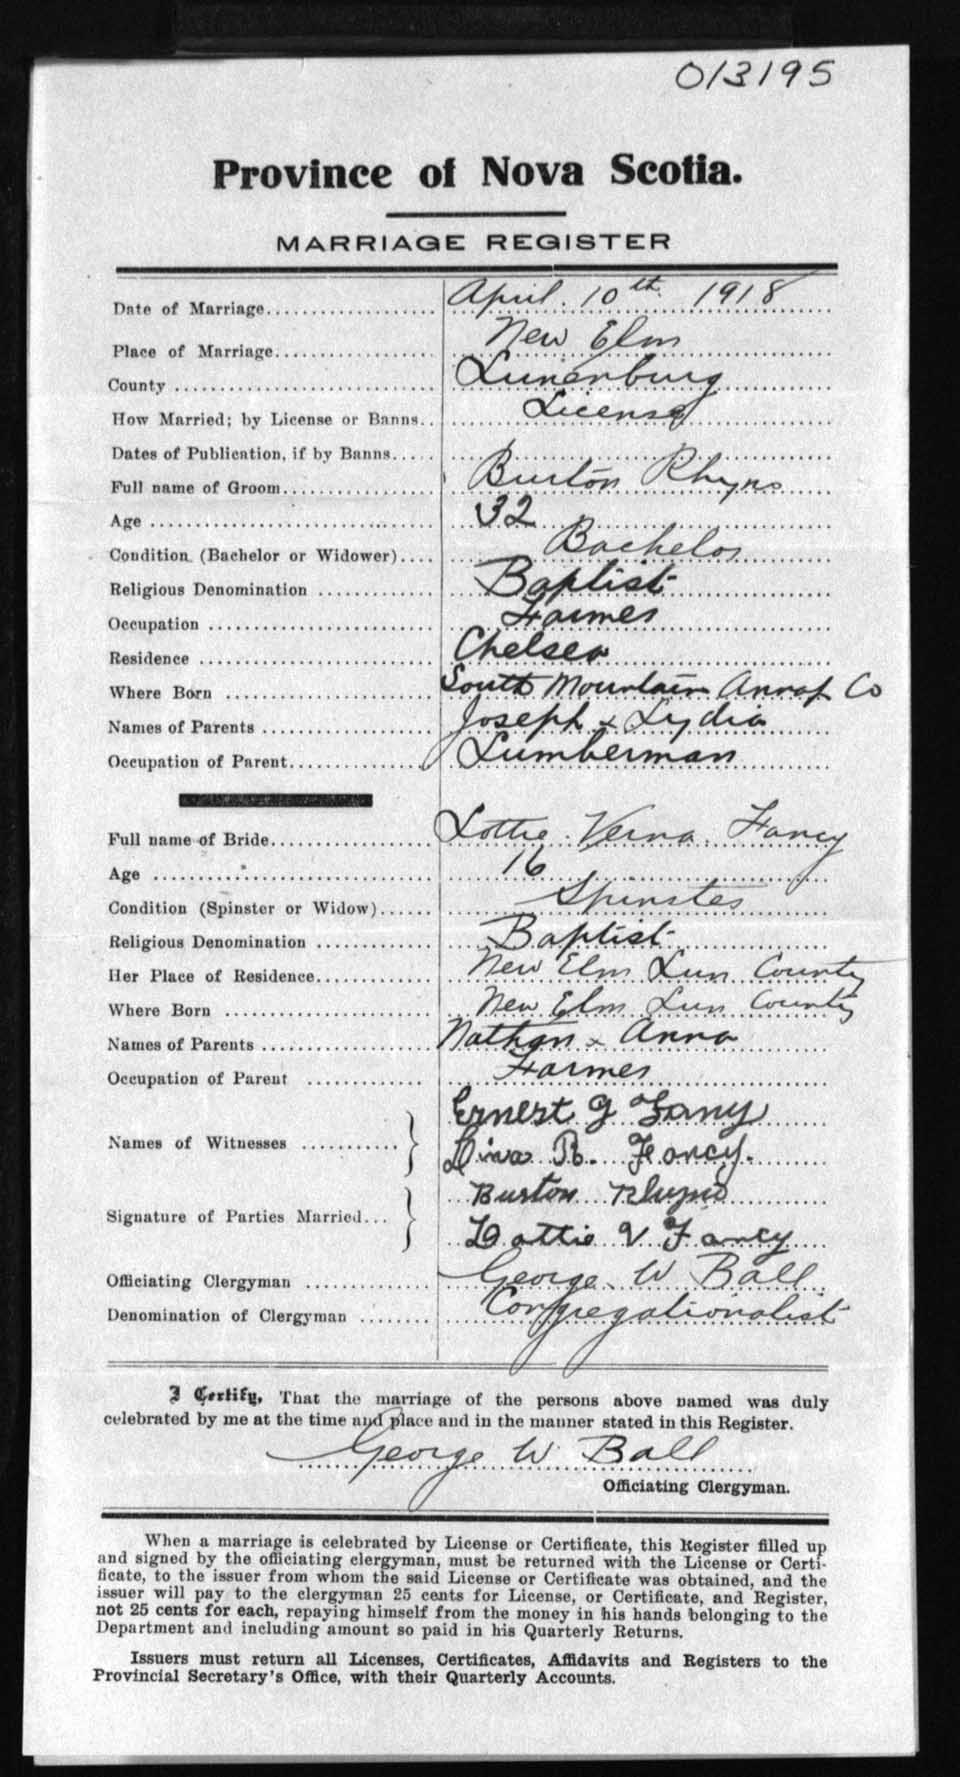 013195
Province of Nova Scotia.
MARRIAGE REGISTER
Date of Marriage................... April. 10th. 1918
Place of Marriage.................. New Elm
County ............................ Lunenburg
How Married; by License or Banns.. License
Dates of Publication, if by Banns.....
Full name of Groom................. Burton Rhyno
Age ............................... 32
Condition (Bachelor or Widower).... Bachelor
Religious Denomination ............ Baptist
Occupation ........................ Farmer
Residence ......................... Chelsea
Where Born ........................ South Mountain Annap Co
Names of Parents .................. Joseph & Lydia
Occupation of Parent............... Lumberman
Full name of Bride................. Lottie. Verna. Fancy
Age ............................... 16
Condition (Spinster or Widow)...... Spinster
Religious Denomination ............ Baptist
Her Place of Residence............. New Elm Lun County
Where Born ........................ New Elm Lun County
Names of Parents .................. Nathan & Anna
Occupation of Parent ............. Farmer
Ernest G Fancy
Names of Witnesses ...........
R. Fancy.
Burton Rhyno
Signature of Parties Married...
Lottie V Fancy
Officiating Clergyman ............. George W Ball
Denomination of Clergyman ........ Congregationalist
I Certify, That the marriage of the persons above named was duly
celebrated by me at the time and place and in the manner stated in this Register.
George W Ball
Officiating Clergyman.
When a marriage is celebrated by License or Certificate, this Register filled up
and signed by the officiating clergyman, must be returned with the License or Certi-
ficate, to the issuer from whom the said License or Certificate was obtained, and the
issuer will pay to the clergyman 25 cents for License, or Certificate, and Register,
not 25 cents for each, repaying himself from the money in his hands belonging to the
Department and including amount so paid in his Quarterly Returns.
Issuers must return all Licenses, Certificates, Affidavits and Registers to the
Provincial Secretary's Office, with their Quarterly Accounts.